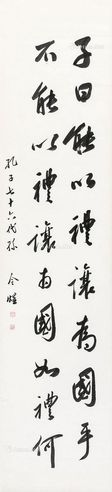 子曰能以禮讓為國乎
不能以禮讓為國如禮何
孔子七十六代孫 令